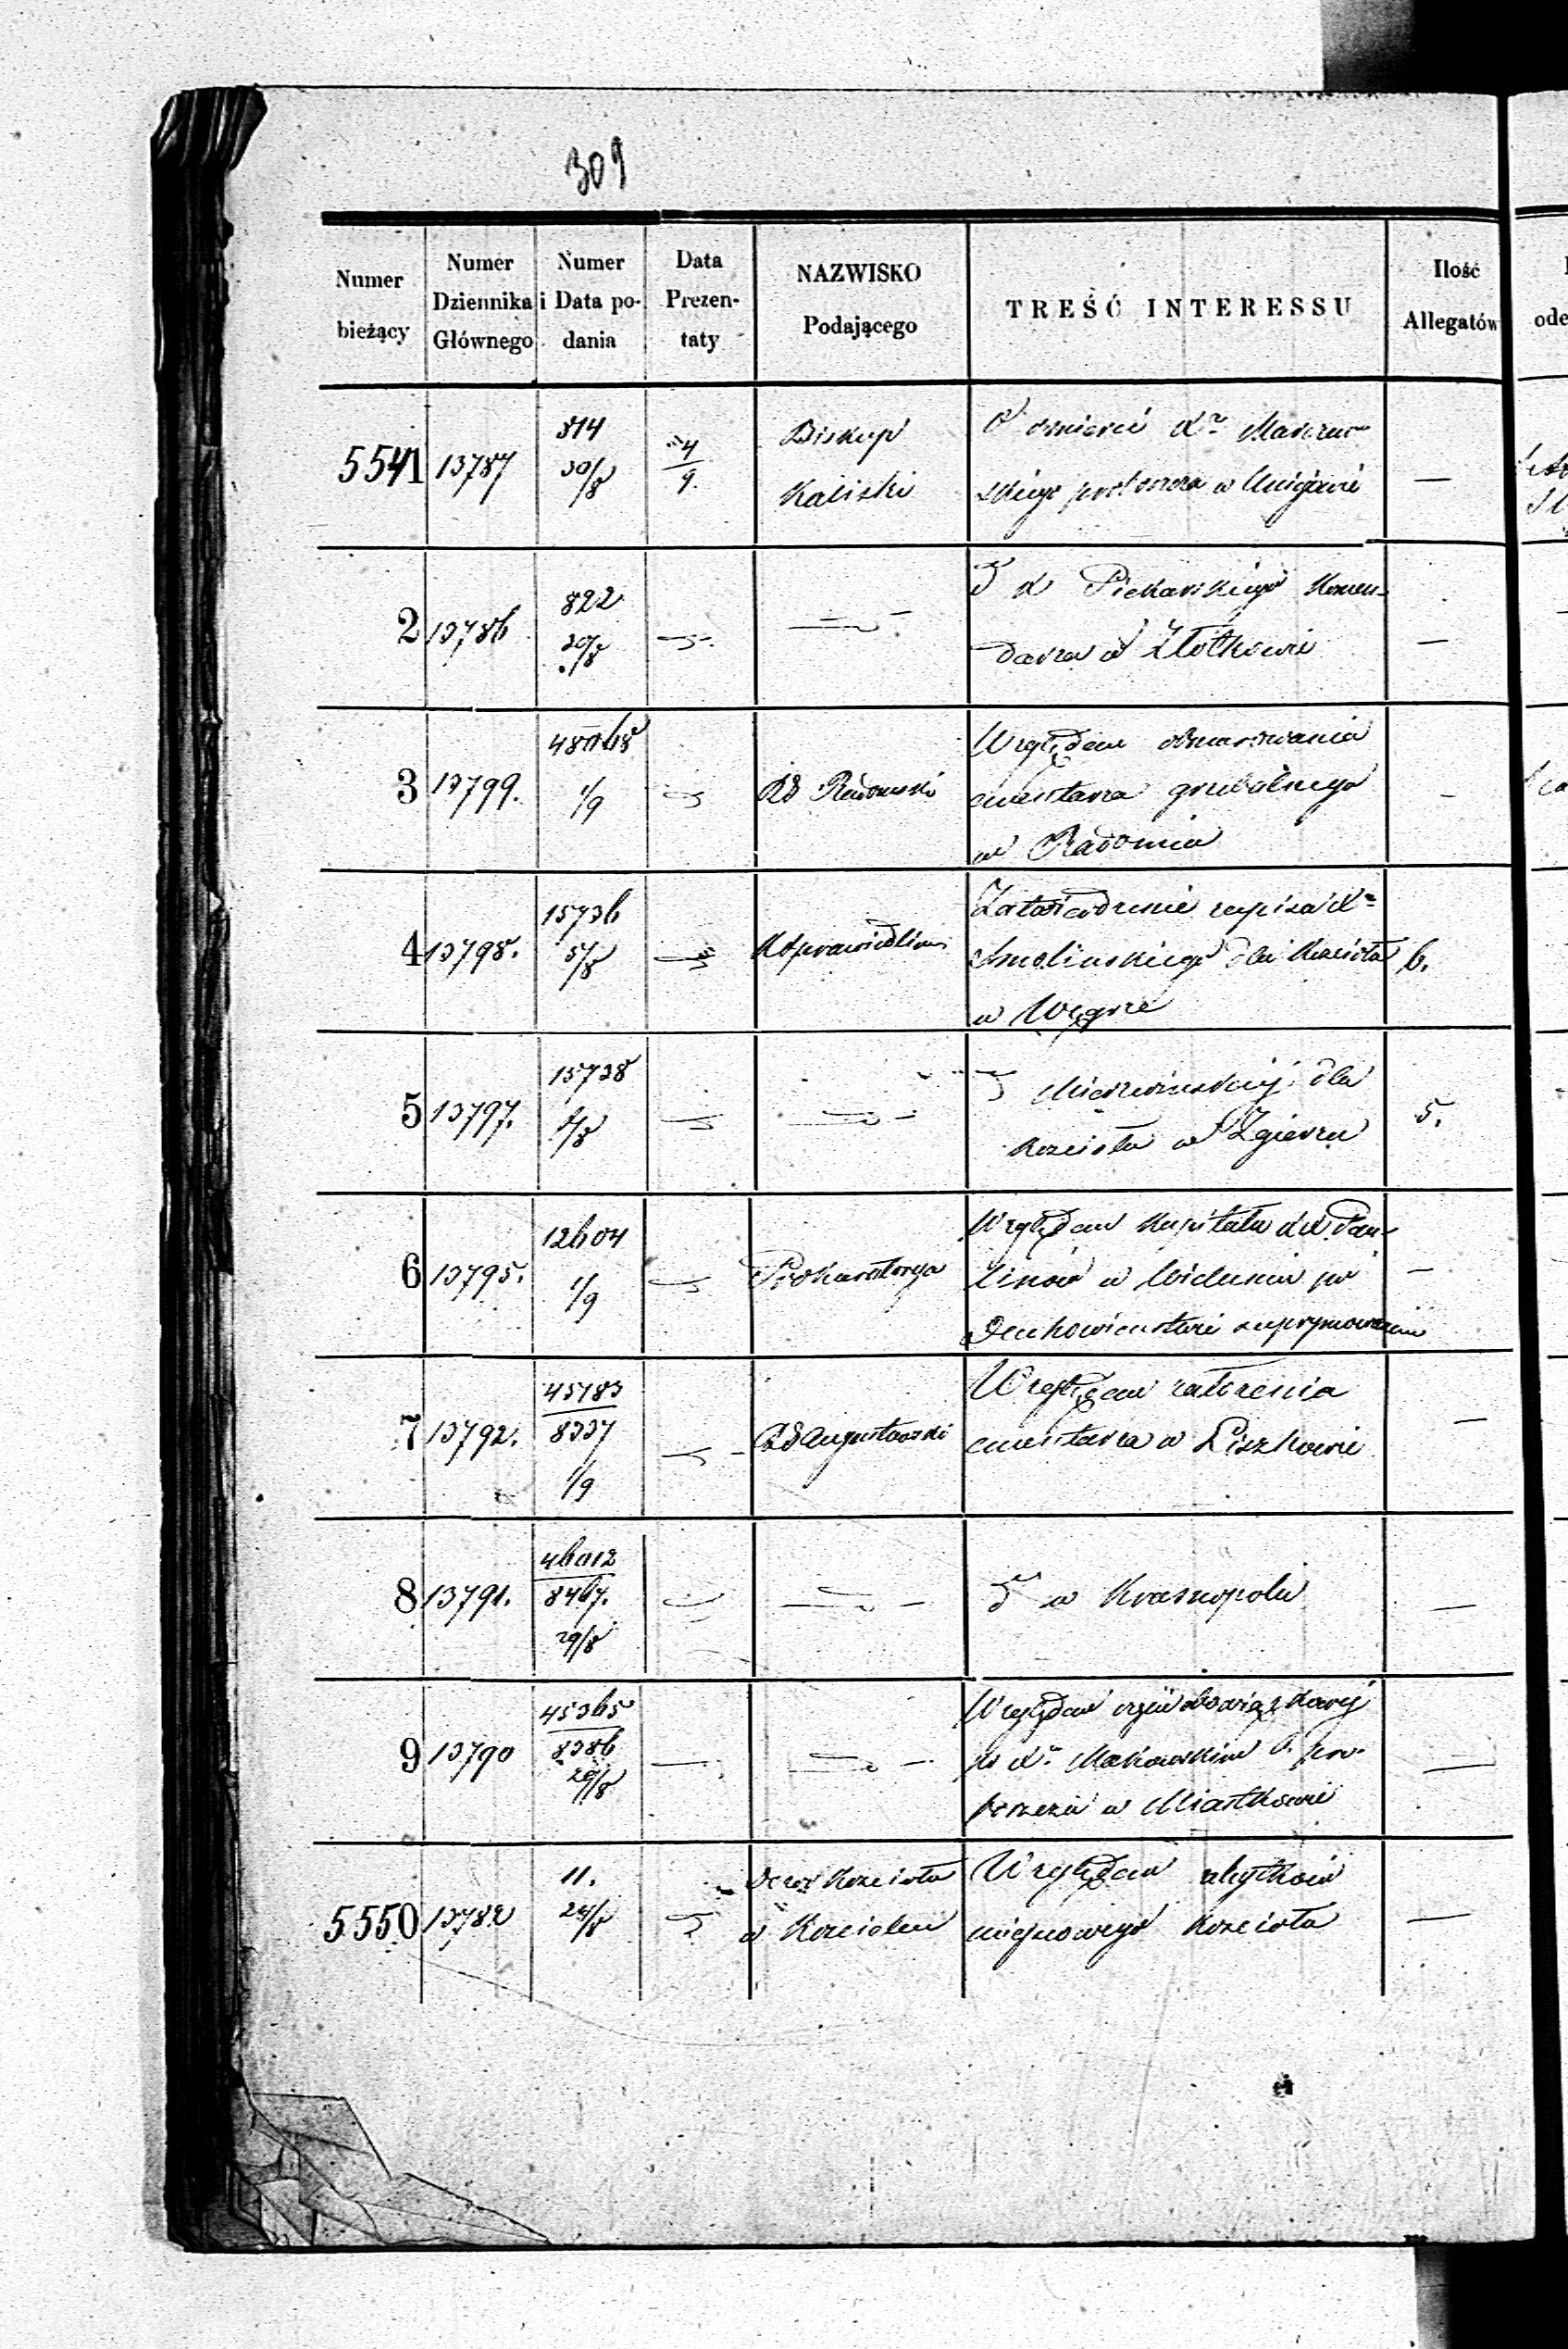 309
Numer bieżący | Numer Dziennika Głównego | Numer i Data podania | Data Prezentaty | NAZWISKO Podającego | TREŚĆ INTERESSU | Ilość Allegatów
5541 | 13787 | 814 30/8 | 4/9 | Biskup Kaliski | O śmierci Xa
skiego proboszcza w | —
2 | 13786 | 822 20/8 | — | — | d X Piekarskiego Komen-
darza w Złotkowie | —
3 | 13799. | 48068 1/9 | — | RG Radomski | Względem obmurowania
cmentarza grzebalnego
w Radomiu | -
4 | 13798. | 15736 5/8 | — | KSprawiedliwoś | Zatwierdzenie zapisu Xa
Smolinskiego dla Kościoła | 6.
w Węgrze
5 | 13797. | 15738 | — | — | d Mierzwinskiej dla
Kościoła w Zgierzu | 5.
6 | 13795. | 12604 1/9 | — | Prokuratorya | Względem Kapitału XX. Pau-
linów w Wieluniu po
Duchowieństwie supprymowanem | —
7 | 13792. | 45183 8337 1/9 | — | RG Augustowski | Względem założenia
cmentarza w Liszkowie | —
8 | 13791. | 46012 8467. 29/8 | — | — | d w Krasnopolu | —
9 | 13790 | 45365 8386 29/8 | — | — | Względem
po Xu Makowskim b. pro-
boszczu w Miastkowie | —
5550 | 13782 | 11. 24/8 | — | Dozór Kościoła
w Kościelcu | Względem
miejscowego Kościoła | —